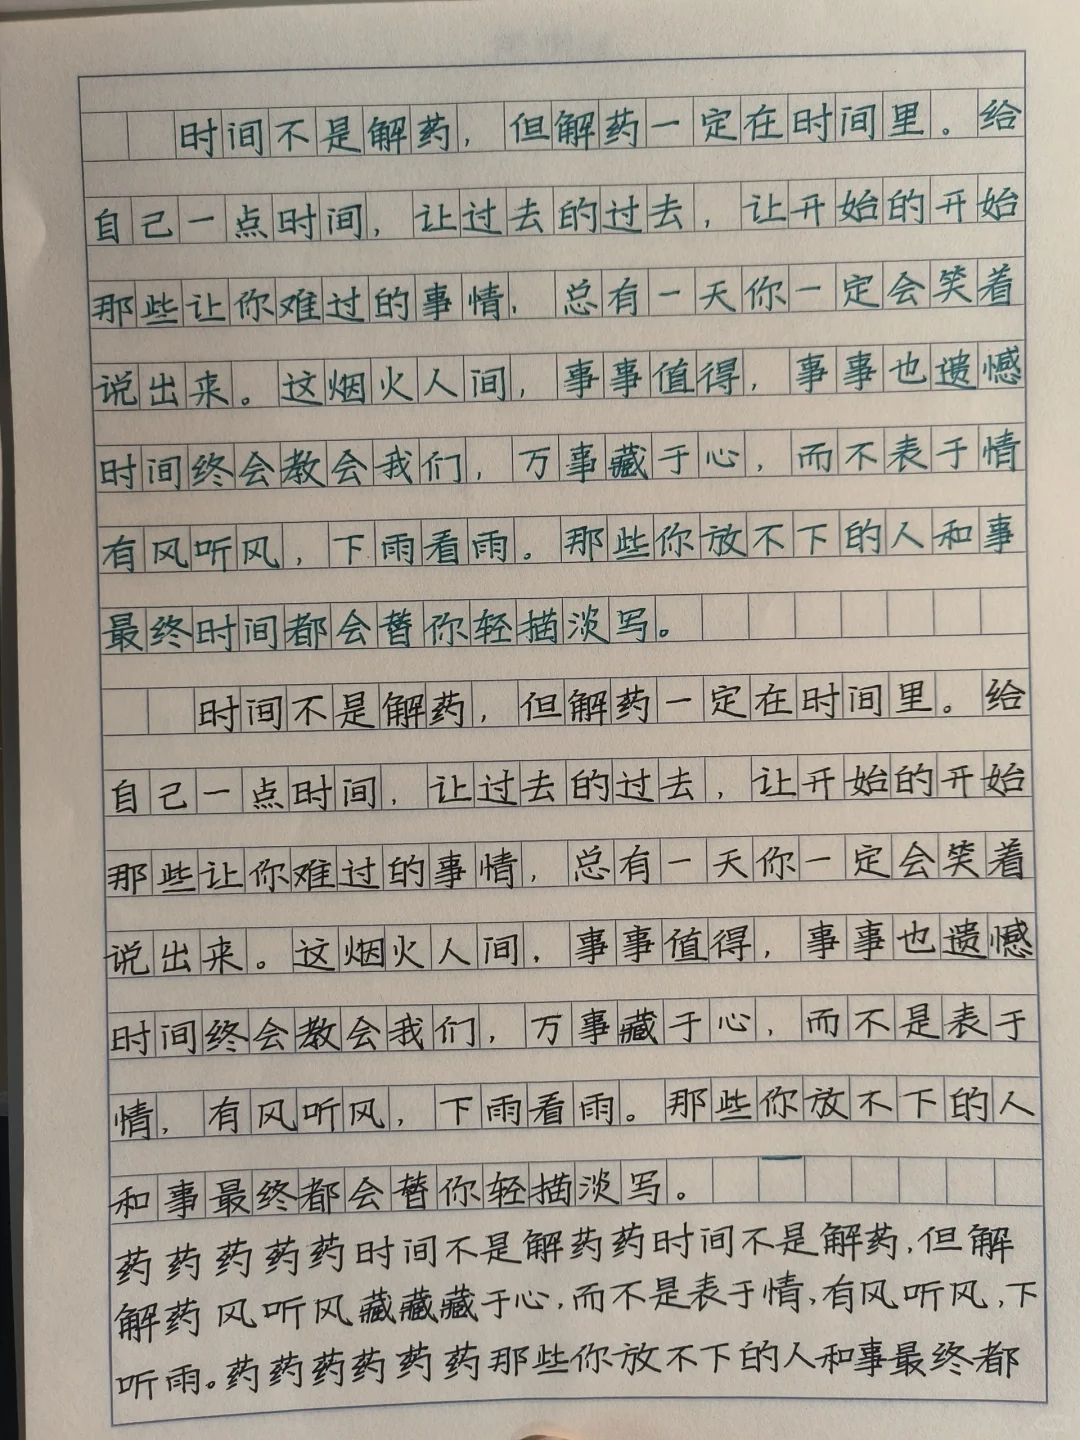 时间不是解药，但解药一定在时间里。给
自己一点时间，让过去的过去，让开始的开始
那些让你难过的事情，总有一天你一定会笑着
说出来。这烟火人间，事事值得，事事也遗憾
时间终会教会我们，万事藏于心，而不表于情
有风听风，下雨看雨。那些你放不下的人和事
最终时间都会替你轻描淡写。
时间不是解药，但解药一定在时间里。给
自己一点时间，让过去的过去，让开始的开始
那些让你难过的事情，总有一天你一定会笑着
说出来。这烟火人间，事事值得，事事也遗憾
时间终会教会我们，万事藏于心，而不是表于
情，有风听风，下雨看雨。那些你放不下的人
和事最终都会替你轻描淡写。
药药药药药时间不是解药药时间不是解药，但解
解药风听风藏藏藏于心，而不是表于情，有风听风，下
听雨。药药药药药药那些你放不下的人和事最终都